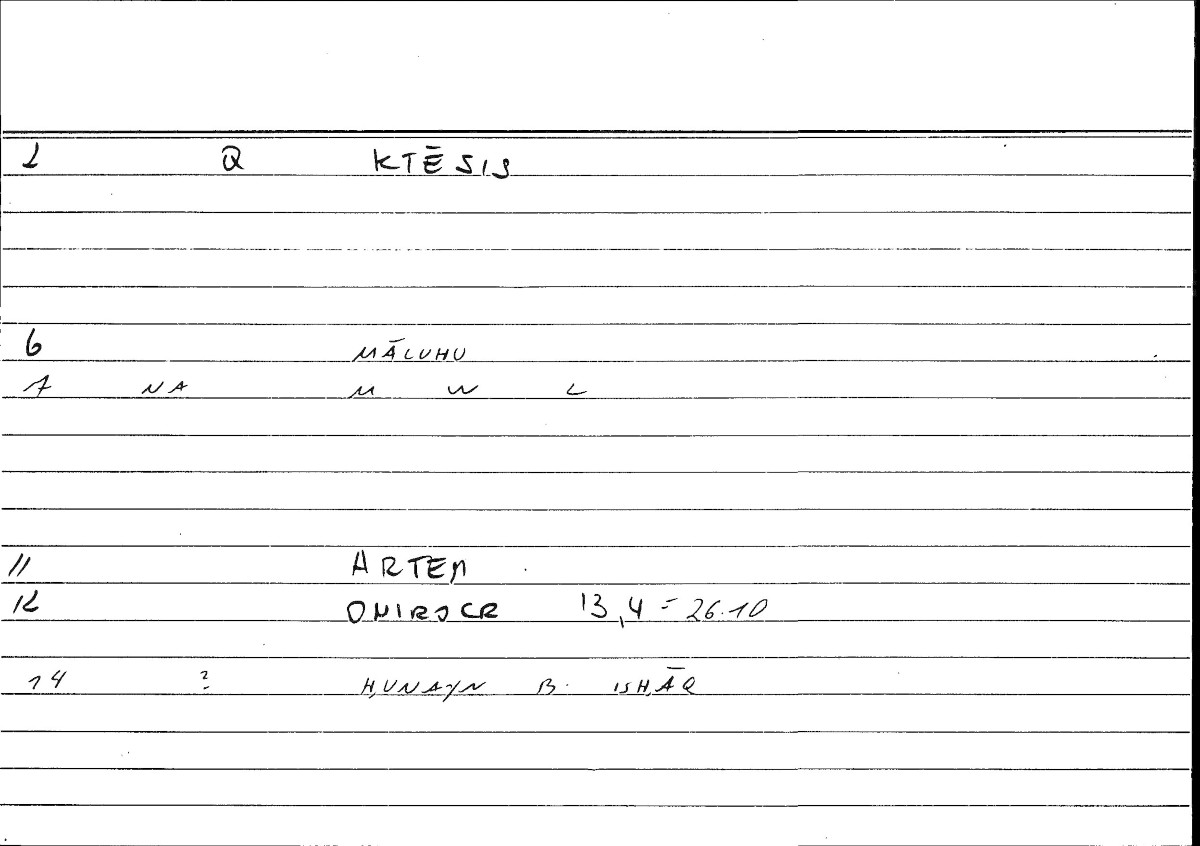 1 Q KTĒSIS
6 MĀLUHU
7 NA M W L
11 ARTEM
12 ONIROCR 13,4 = 26.10
14 ? H,UNAYN B. ISH,ĀQ